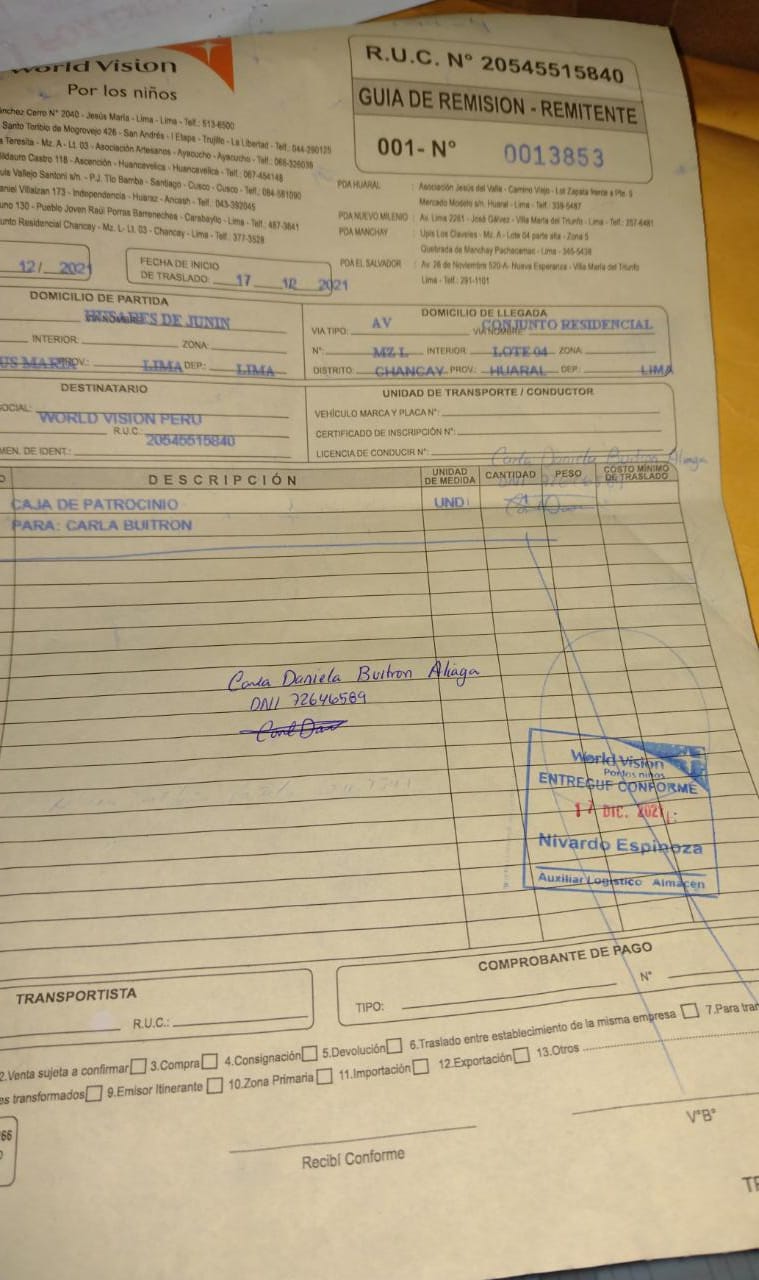 World Vision
Por los niños
R.U.C. N° 20545515840
GUIA DE REMISION - REMITENTE
001- N° 0013853
nchez Cerro N° 2040 - Jesús María - Lima - Lima - Telf.: 513-6500
Santo Toribio de Mogrovejo 426 - San Andrés - I Etapa - Trujillo - La Libertad - Telf.: 044-290125
a Teresita - Mz. A - Lt. 03 - Asociación Artesanos - Ayacucho - Ayacucho - Telf.: 066-326039
ildauro Castro 118 - Ascención - Huancavelica - Huancavelica - Telf.: 067-454148
uis Vallejo Santoni s/n. - P.J. Tio Bamba - Santiago - Cusco - Cusco - Telf.: 084-581090
aniel Villaizan 173 - Independencia - Huaraz - Ancash - Telf.: 043-392045
uno 130 - Pueblo Joven Raúl Porras Barrenechea - Carabayllo - Lima - Telf.: 487-3841
unto Residencial Chancay - Mz. L- Lt. 03 - Chancay - Lima - Telf.: 377-3528
PDA HUARAL : Asociación Jesús del Valle - Camino Viejo - Lot Zapata frente a Pte. 5
Mercado Modelo s/n. Huaral - Lima - Telf.: 339-5487
PDA NUEVO MILENIO : Av. Lima 2281 - José Gálvez - Villa María del Triunfo - Lima - Telf.: 257-6481
PDA MANCHAY : Upis Los Claveles - Mz. A - Lote 04 parte alta - Zona 5
Quebrada de Manchay Pachacamac - Lima - 345-5438
PDA EL SALVADOR : Av. 26 de Noviembre 520-A- Nueva Esperanza - Villa María del Triunfo
Lima - Telf.: 291-1101
12/ 2021
FECHA DE INICIO
DE TRASLADO: 17 12 2021
DOMICILIO DE PARTIDA
HUSARES DE JUNIN
INTERIOR: ZONA:
US MARIA PROV.: LIMA DEP.: LIMA
DOMICILIO DE LLEGADA
VIA TIPO: AV VIA NOMBRE CONJUNTO RESIDENCIAL
N°: MZ L INTERIOR LOTE 04 ZONA:
DISTRITO: CHANCAY PROV.: HUARAL DEP: LIMA
DESTINATARIO
OCIAL: WORLD VISION PERU
R.U.C: 20545515840
MEN. DE IDENT.:
UNIDAD DE TRANSPORTE / CONDUCTOR
VEHÍCULO MARCA Y PLACA N°:
CERTIFICADO DE INSCRIPCIÓN N°:
LICENCIA DE CONDUCIR N°:
Carla Daniela Buitron Aliaga
DESCRIPCIÓN UNIDAD DE MEDIDA CANTIDAD PESO COSTO MÍNIMO DE TRASLADO
CAJA DE PATROCINIO UND
PARA: CARLA BUITRON
Carla Daniela Buitron Aliaga
DNI 72646589
World Vision
Por los niños
ENTREGUE CONFORME
17 DIC. 2021
Nivardo Espinoza
Auxiliar Logístico Almacen
TRANSPORTISTA
R.U.C.:
COMPROBANTE DE PAGO
TIPO: N°
2.Venta sujeta a confirmar 3.Compra 4.Consignación 5.Devolución 6.Traslado entre establecimiento de la misma empresa 7.Para tran
es transformados 9.Emisor Itinerante 10.Zona Primaria 11.Importación 12.Exportación 13.Otros
66
Recibí Conforme
V°B°